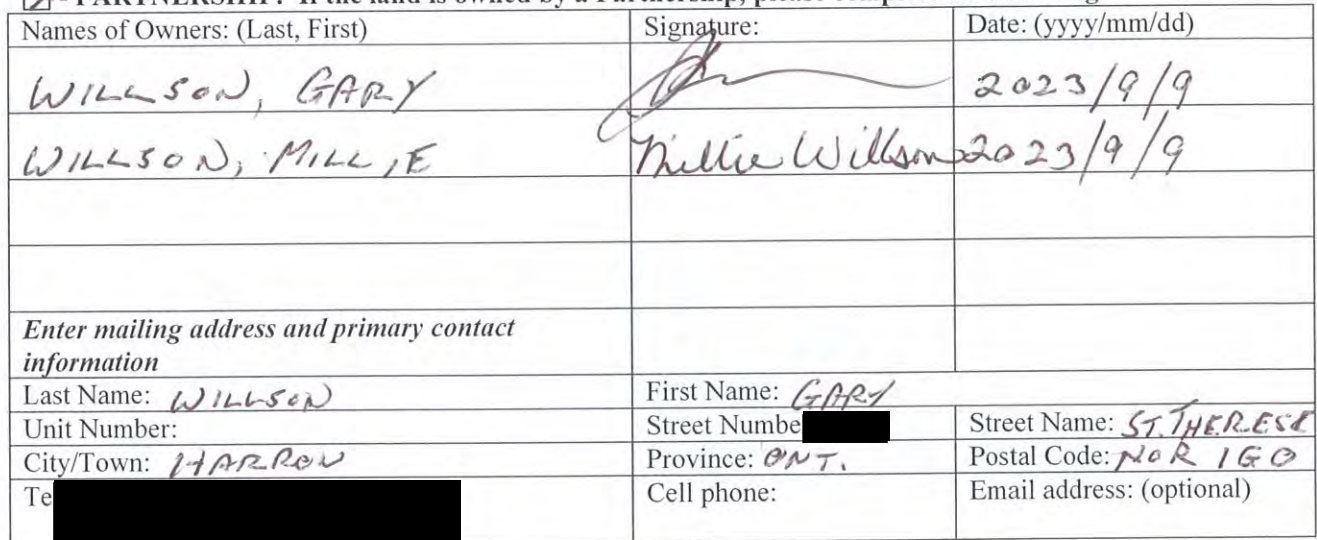 PARTNERSHIP:
Names of Owners: (Last, First) Signature: Date: (yyyy/mm/dd)
WILLSON, GARY 2023/9/9
WILLSON, MILLIE Millie Willson 2023/9/9
Enter mailing address and primary contact
information
Last Name: WILLSON First Name: GARY
Unit Number: Street Numbe Street Name: ST. THERESE
City/Town: HARROW Province: ONT. Postal Code: N0R 1G0
Te Cell phone: Email address: (optional)